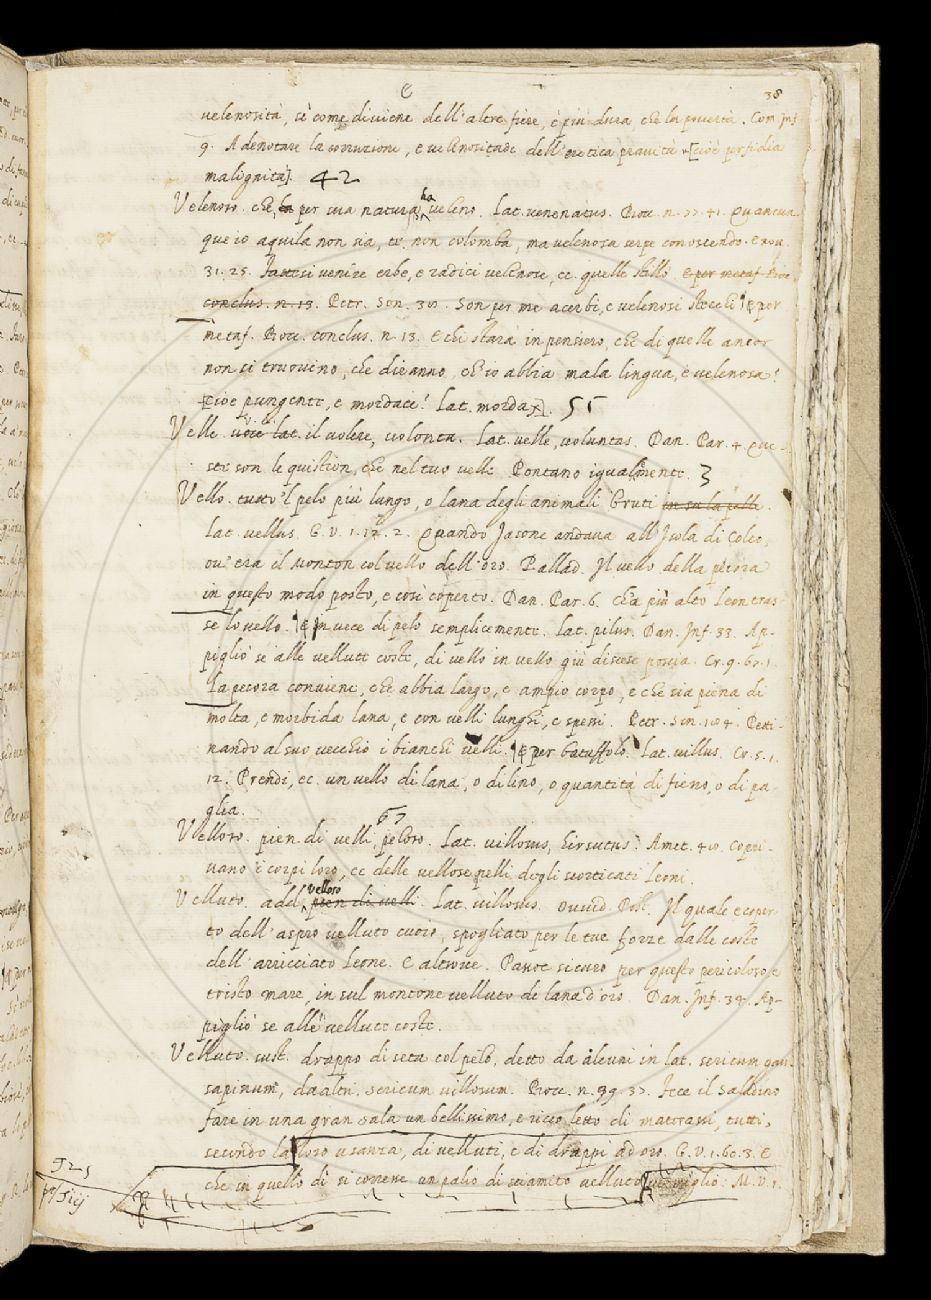 E
38
velenosità, sì come diviene dell'altre fiere, è più dura che la povertà. Com. Inf.
9. A denotare la corruzione, e velenositade dell'eretica pravità [cioè perfidia
malignità]. 42
Velenoso. che, ha per sua natura, veleno. Lat. venenatus. Bocc. n. 77. 41. Quantun
que io aquila non sia, te non colomba, ma velenosa serpe conoscendo. E nov.
31. 25. Fattisi venire erbe, e radici velenose, ec. quelle stillò. E per metaf. Bocc.
conclus. n. 13. Petr. Son. 30. Son per me acerbi, e velenosi stecchi ¶ E per
metaf. Bocc. conclus. n. 13. E chi starà in pensiero, che di quelle ancor
non si truovino, che dieanno, ch'io abbia mala lingua, e velenosa?
[cioè pungente, e mordace! Lat. mordax]. 55
Velle. voce lat. il volere, volontà. Lat. velle, voluntas. Dan. Par. 4. Que-
ste son le quistion, che nel tuo velle Pontano igualmente. 3
Vello. tutto 'l pelo più lungo, o lana degli animali bruti in su la pelle.
Lat. vellus. G. V. 1. 12. 2. Quando Jasone andava all'Isola di Colco,
ov'era il monton col vello dell'oro. Pallad. Il vello della pecora
in questo modo posto, e così coperto. Dan. Par. 6. Ch'a più alto Leon tras-
se lo vello. ¶ E in vece di pelo semplicemente. Lat. pilus. Dan. Inf. 33. Ap-
pigliò sè alle vellute coste, di vello in vello giù discese poscia. Cr. 9. 67. 1.
La pecora conviene, che abbia largo, e ampio corpo, e che sia piena di
molta, e morbida lana, e con velli lunghi, e spessi. Petr. Son. 104. Petti-
nando al suo vecchio i bianchi velli. ¶ E per batuffolo. Lat. villus. Cr. 5. 1.
12. Prendi, ec. un vello di lana, o di lino, o quantità di fieno, o di pa
glia. 67
Velloso. pien di velli, peloso. Lat. villosus, hirsutus. Amet. 40. Copri-
vano i corpi loro, ec. delle vellose pelli degli scorticati Leoni.
Velluto. add. velloso pien di velli. Lat. villosus. Ovvid. Pist. Il quale è coper-
to dell'aspro velluto cuoio, spogliato per le tue forze dalle coste
dell'arricciato Leone. E altrove. Passoe sicuro per questo pericoloso, e
tristo mare, in sul montone velluto di lana d'oro. Dan. Inf. 34. Ap-
pigliò sè alle vellute coste.
Velluto. sust. drappo di seta col pelo, detto da alcuni in lat. sericum gau
sapinum, da altri, sericum villosum. Bocc. n. 99. 37. Fece il Saladino
fare in una gran sala un bellissimo, e ricco letto di materassi, tutti,
secondo la loro usanza, di velluti, e di drappi ad oro. G. V. 1. 60. 3. E
che in quello dì si corresse un palio di sciamito velluto vermiglio. M. V. 1.